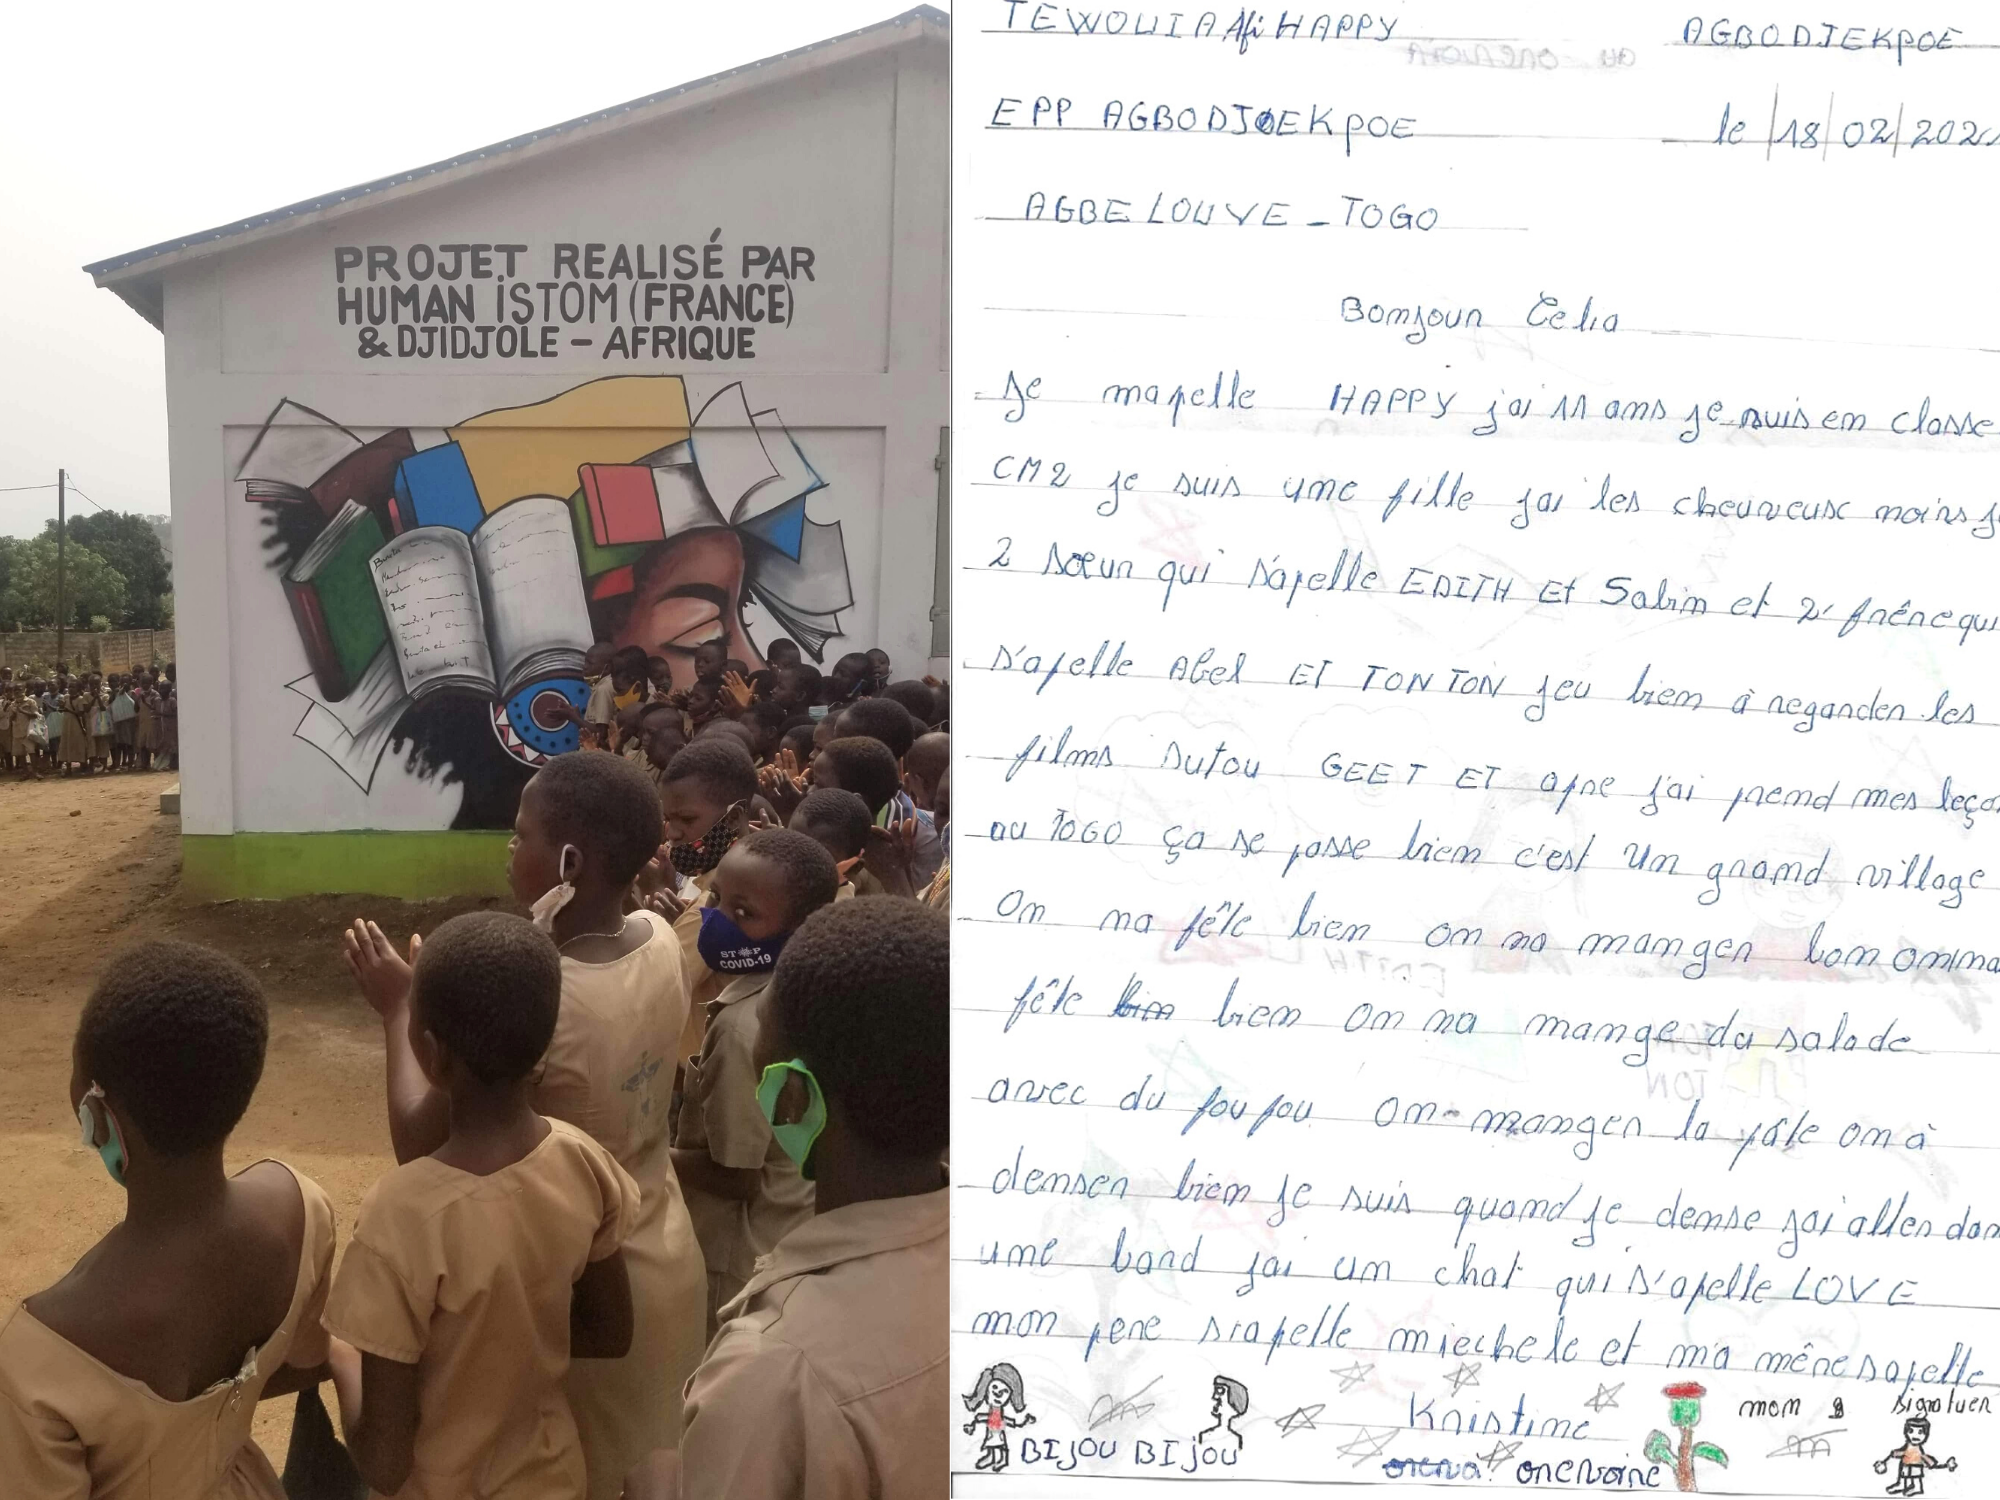 PROJET REALISÉ PAR
HUMAN ISTOM (FRANCE)
& DJIDJOLE - AFRIQUE
STOP
COVID-19
TEWOUIA Afi HAPPY AGBODJEKPOE
EPP AGBODJOEKPOE le 18/02/202
AGBELOUVE - TOGO
Bonjour Celia
Je mapelle HAPPY j'ai 11 ans je suis en classe
CM2 je suis une fille jai les cheuveux moins
2 soeur qui s'apelle EDITH Et Sabin et 2 frère qui
s'apelle Abel ET TONTON jeu bien à regarder les
films sutou GEET ET apre j'ai prend mes leço
au TOGO ça se passe bien c'est un grand village
On na fête bien on na manger bon on na
fête bien on na mange du salade
avec du foufou on manger la pâte on à
denser bien je suis quand je dense jai aller dan
une band jai un chat qui s'apelle LOVE
mon pere s'apelle miechele et ma mère sapelle
Kristine
BIJOU BIJOU mom signatuer
onervoire